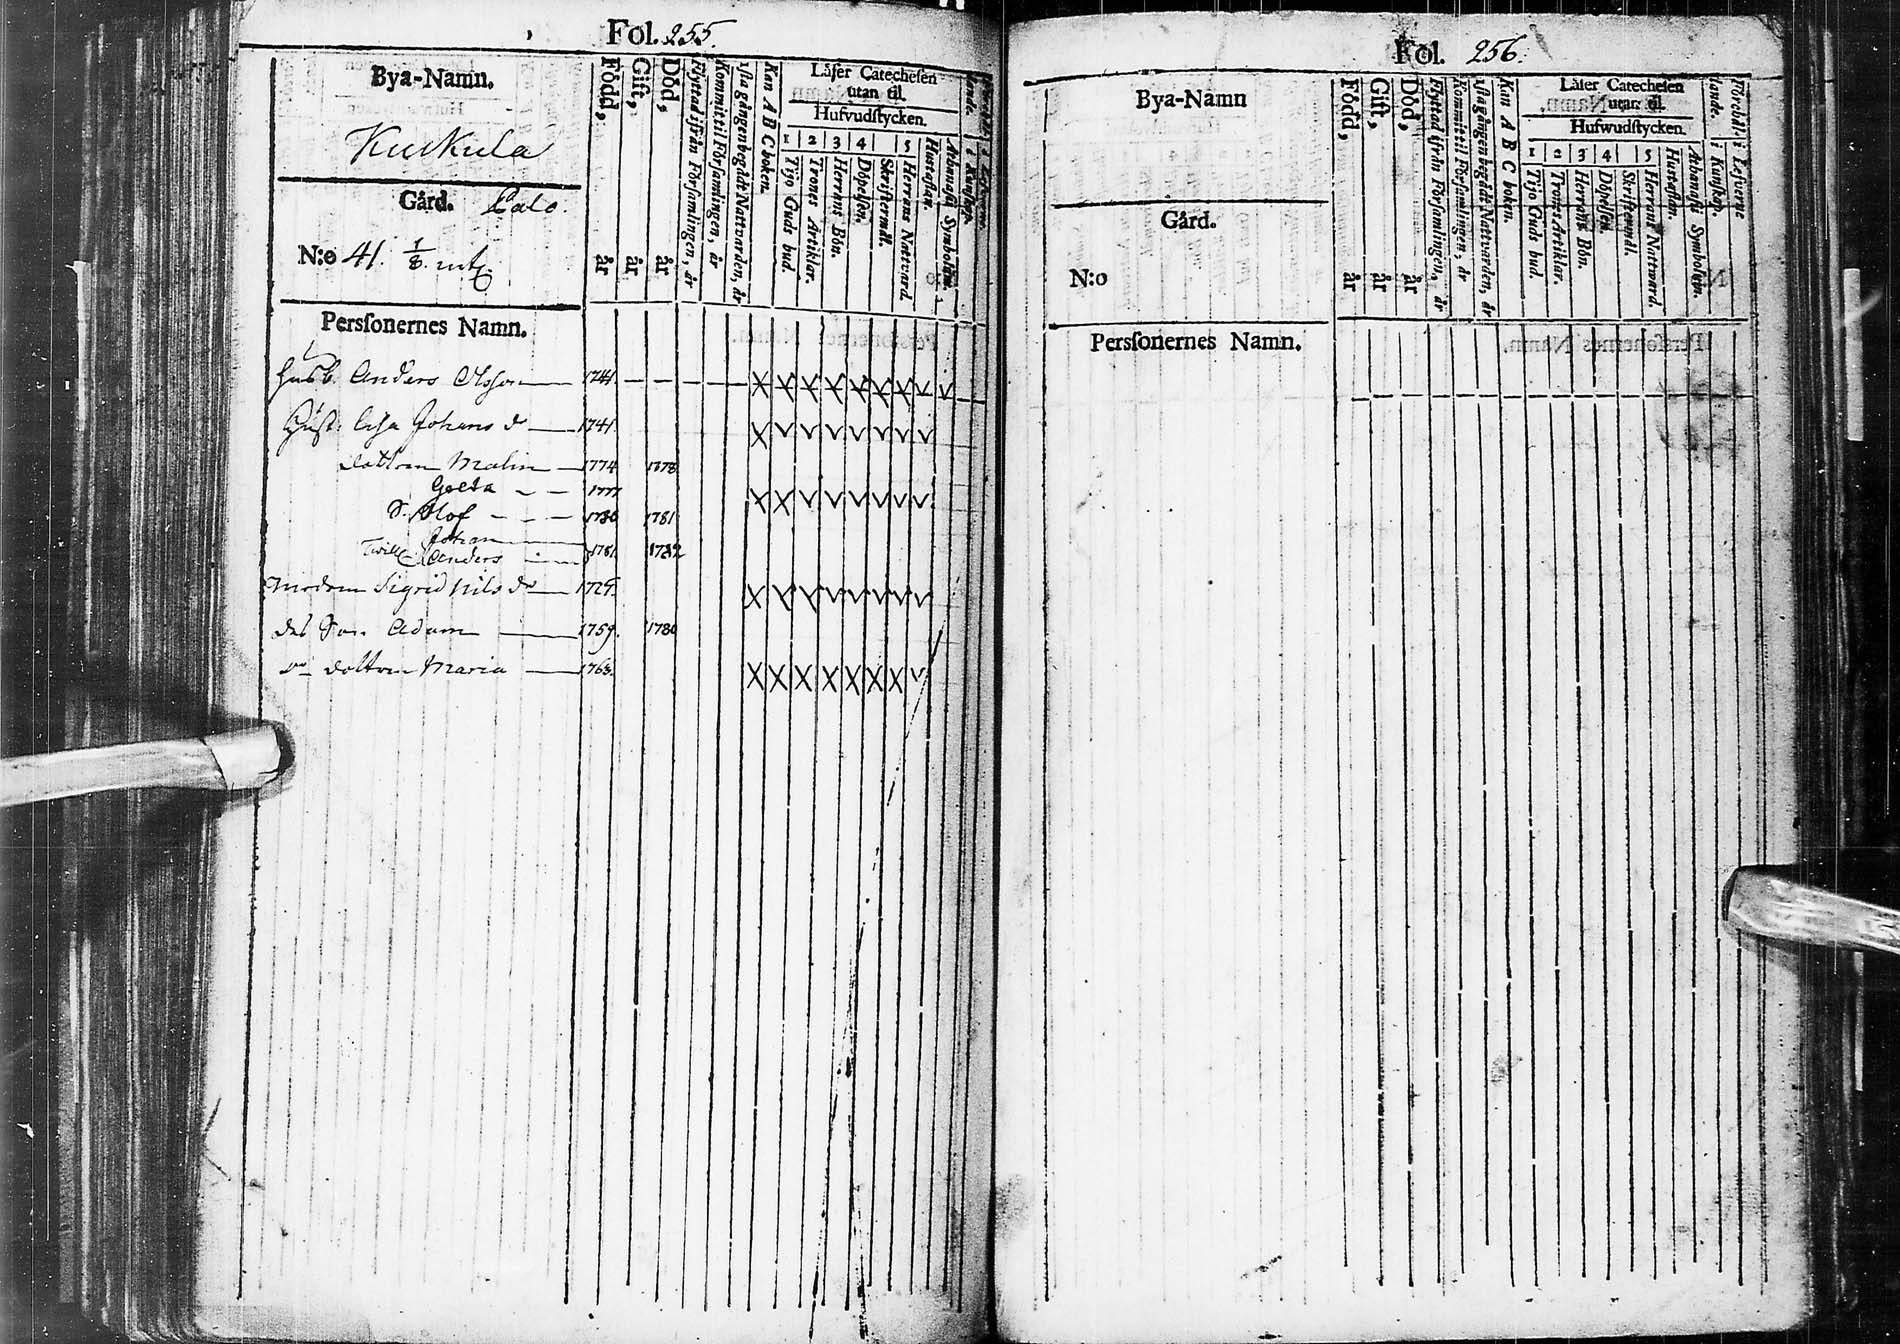 Fol. 255.
Bya-Namn.
Kuckula
Gård. Palo.
N:o 41. 1/8. mtl.
Född, år
Gift, år
Död, år
Flyttad ifrån Församlingen, år
Kommit til Församlingen, år
1sta gången begådt Nattvarden, år
Kan A B C boken.
Läser Catechesen
utan til.
Hufvudstycken.
1 2 3 4 5
Tijo Guds bud.
Trones Artiklar.
Herrans Bön.
Döpelsen.
Skriftermål.
Herrans Nattvard.
Hustaflan.
Athanasii Symbolum.
Personernes Namn.
Husb. Anders Olsson 1741
Hust. Lisa Johans dr 1741
dottren Malin 1774 1778
Greta 1777
S. Olof 1780 1781
Johan
Twill. Anders 1781 1782
modren Sigrid Nils dr 1729
des Son Adam 1759. 1780
dottren Maria 1763
Fol. 256.
Bya-Namn
Gård.
N:o
Född, år
Gift, år
Död, år
Flyttad ifrån Församlingen, år
Kommit til Församlingen, år
1sta gången begådt Nattvarden, år
Kan A B C boken.
Läser Catechesen
utan til.
Hufwudstycken.
1 2 3 4 5
Tijo Guds bud.
Trones Artiklar.
Herrans Bön.
Döpelsen.
Skriftermål.
Herrans Nattward.
Hustaflan.
Athanasii Symbolum.
Förehållande. i Kunskap.
i Lefverne
Personernes Namn.